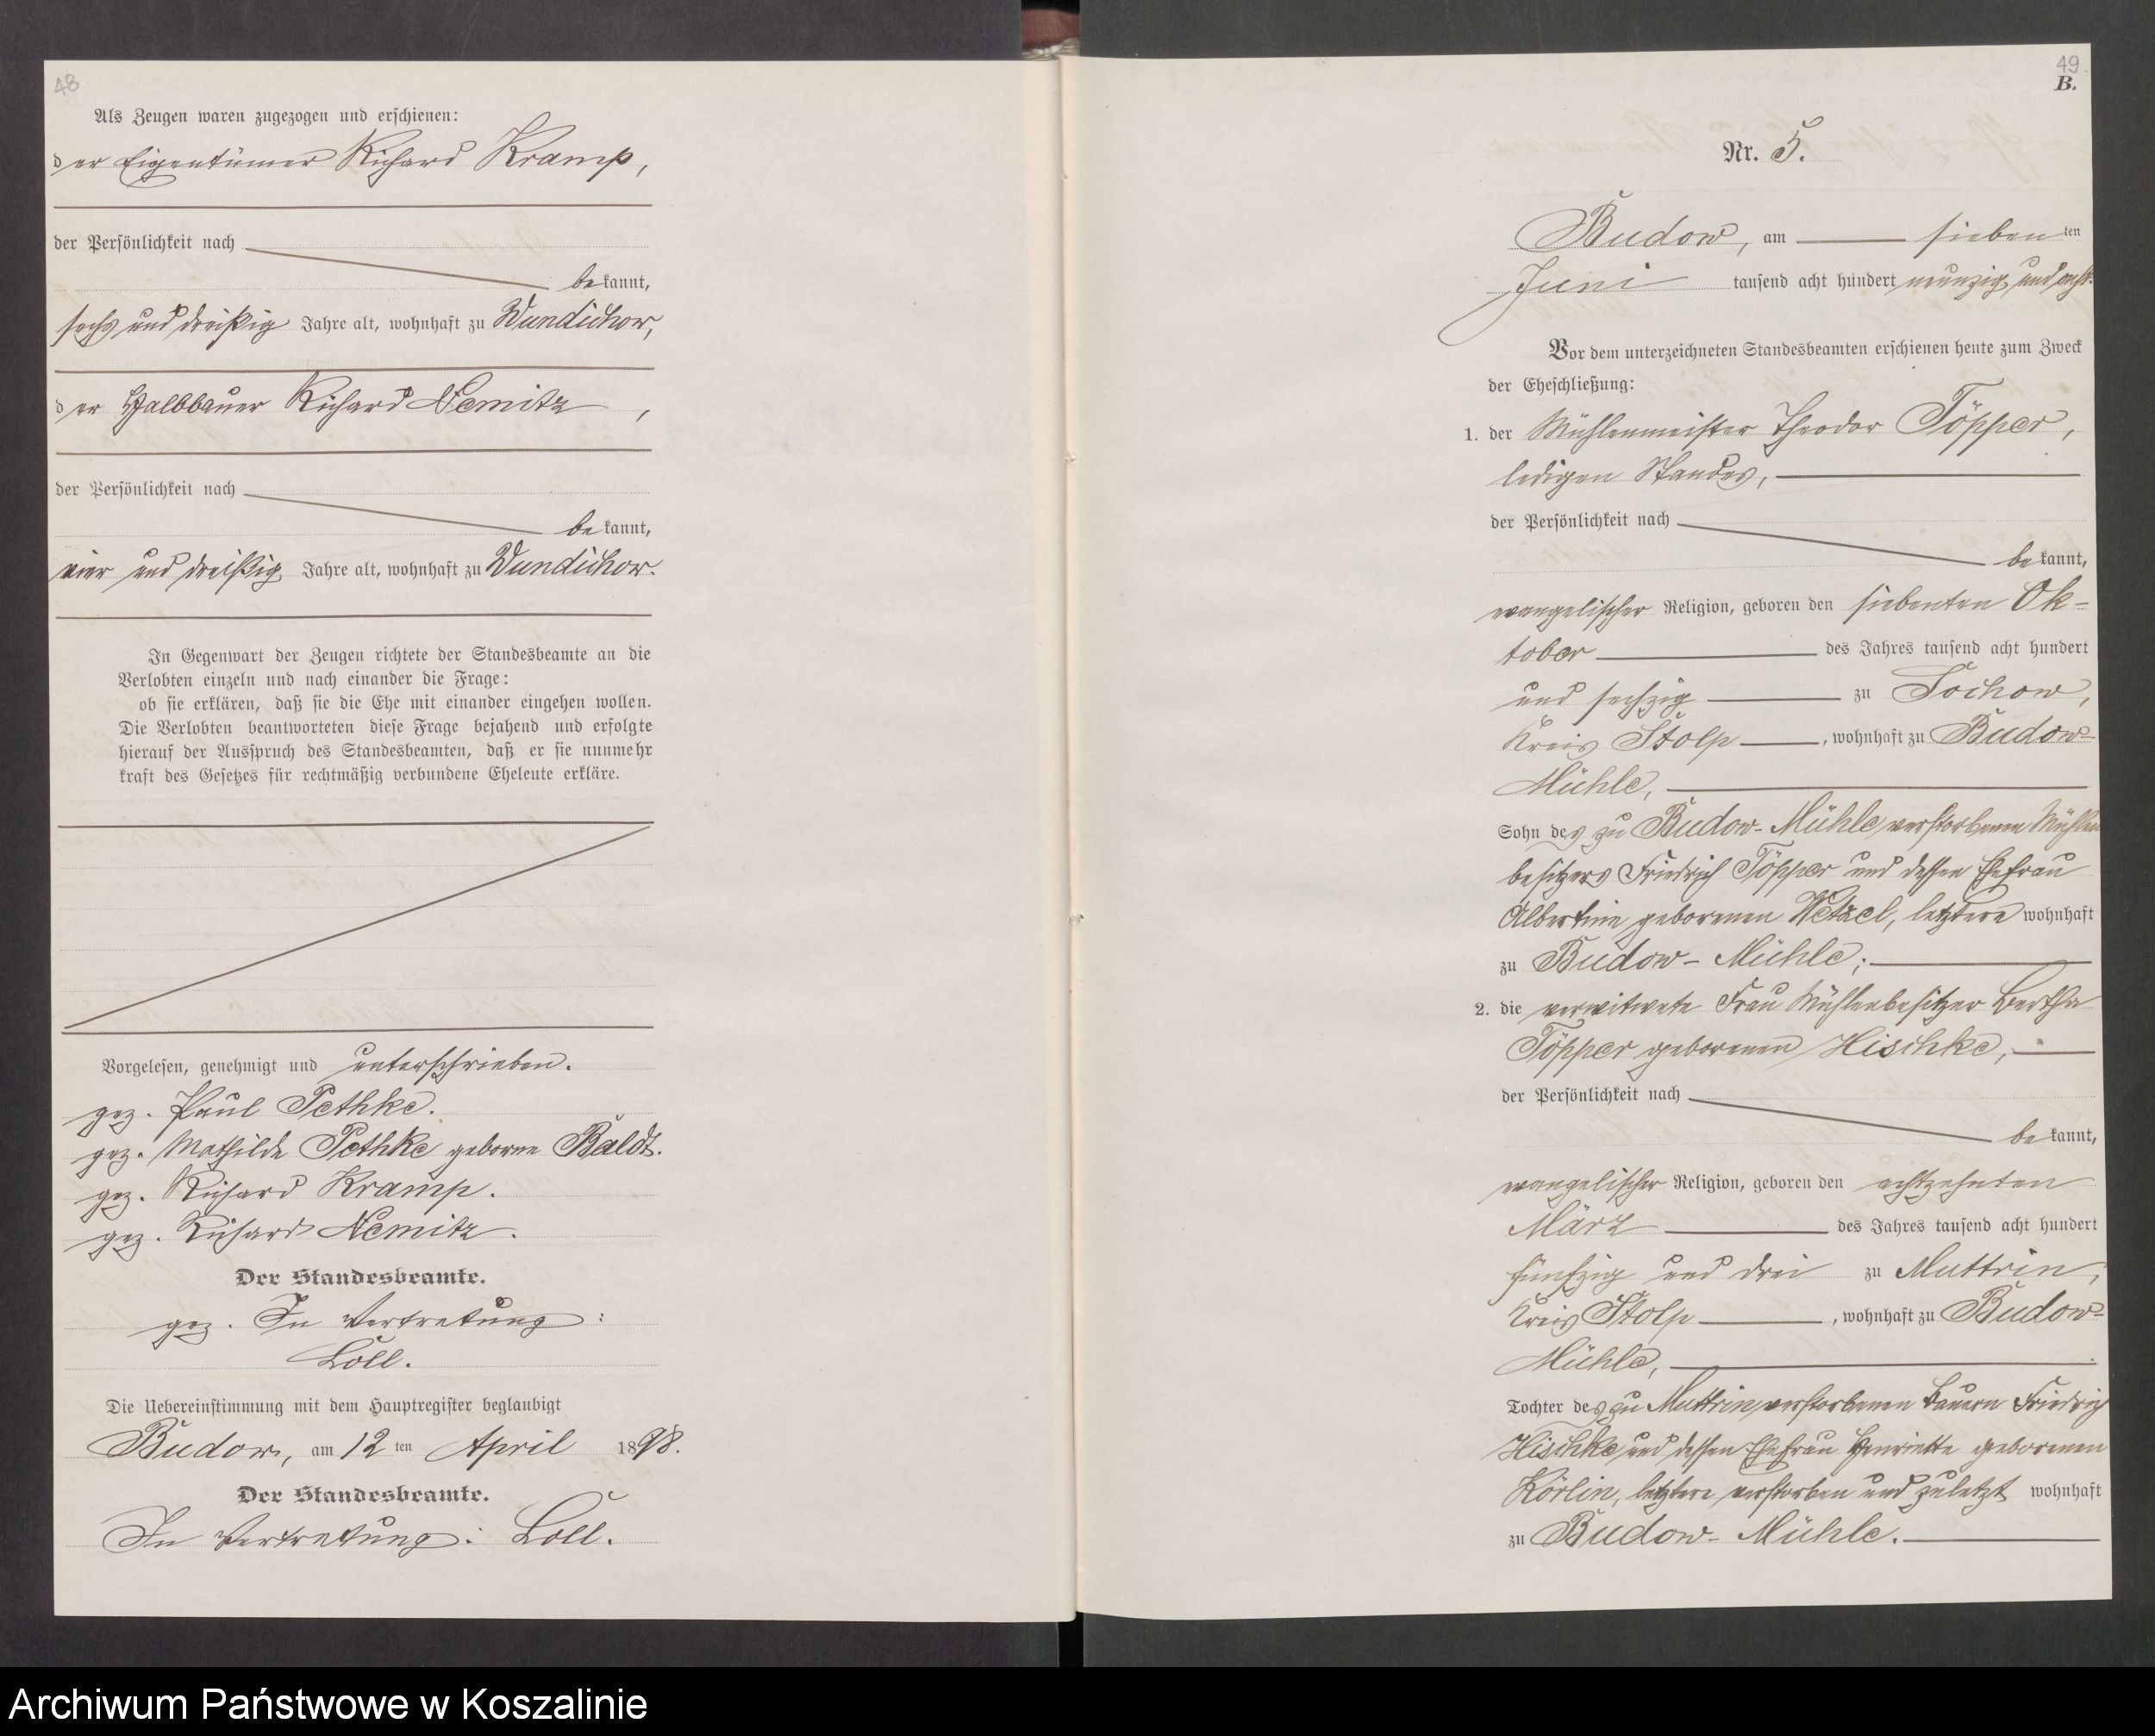 48
Als Zeugen waren zugezogen und erschienen:
der Eigentümer Richard Kramp,
der Persönlichkeit nach
bekannt,
sechs und dreißig Jahre alt, wohnhaft zu Wundichow,
der Halbbauer Richard Nemitz,
der Persönlichkeit nach
bekannt,
vier und dreißig Jahre alt, wohnhaft zu Wundichow.
In Gegenwart der Zeugen richtete der Standesbeamte an die
Verlobten einzeln und nach einander die Frage:
ob sie erklären, daß sie die Ehe mit einander eingehen wollen.
Die Verlobten beantworteten diese Frage bejahend und erfolgte
hierauf der Ausspruch des Standesbeamten, daß er sie nunmehr
kraft des Gesetzes für rechtmäßig verbundene Eheleute erkläre.
Vorgelesen, genehmigt und unterschrieben.
gez. Paul Pethke.
gez. Mathilde Pethke geborne Baldt.
gez. Richard Kramp.
gez. Richard Nemitz.
Der Standesbeamte.
gez. In Vertretung:
Loll.
Die Uebereinstimmung mit dem Hauptregister beglaubigt
Budow, am 12 ten April 1898.
Der Standesbeamte.
In Vertretung: Loll.
49.
B.
Nr. 5.
Budow, am siebenten
Juni tausend acht hundert neunzig und acht.
Vor dem unterzeichneten Standesbeamten erschienen heute zum Zweck
der Eheschließung:
1. der Mühlenmeister Theodor Töpper,
ledigen Standes,
der Persönlichkeit nach
bekannt,
evangelischer Religion, geboren den siebenten Ok-
tober des Jahres tausend acht hundert
und sechzig zu Jochow,
Kreis Stolp, wohnhaft zu Budow-
Mühle,
Sohn des zu Budow-Mühle verstorbenen Mühlen
besitzers Friedrich Töpper und dessen Ehefrau
Albertine geborenen Wetzel, letztere wohnhaft
zu Budow-Mühle;
2. die verwitwete Frau Mühlenbesitzer Bertha
Töpper geborenen Hischke,
der Persönlichkeit nach
bekannt,
evangelischer Religion, geboren den achtzehnten
März des Jahres tausend acht hundert
fünfzig und drei zu Muttrin,
Kreis Stolp, wohnhaft zu Budow-
Mühle,
Tochter des zu Muttrin verstorbenen Bauern Friedrich
Hischke und dessen Ehefrau Henriette geborenen
Körlin, letztere verstorben und zuletzt wohnhaft
zu Budow-Mühle.
Archiwum Państwowe w Koszalinie